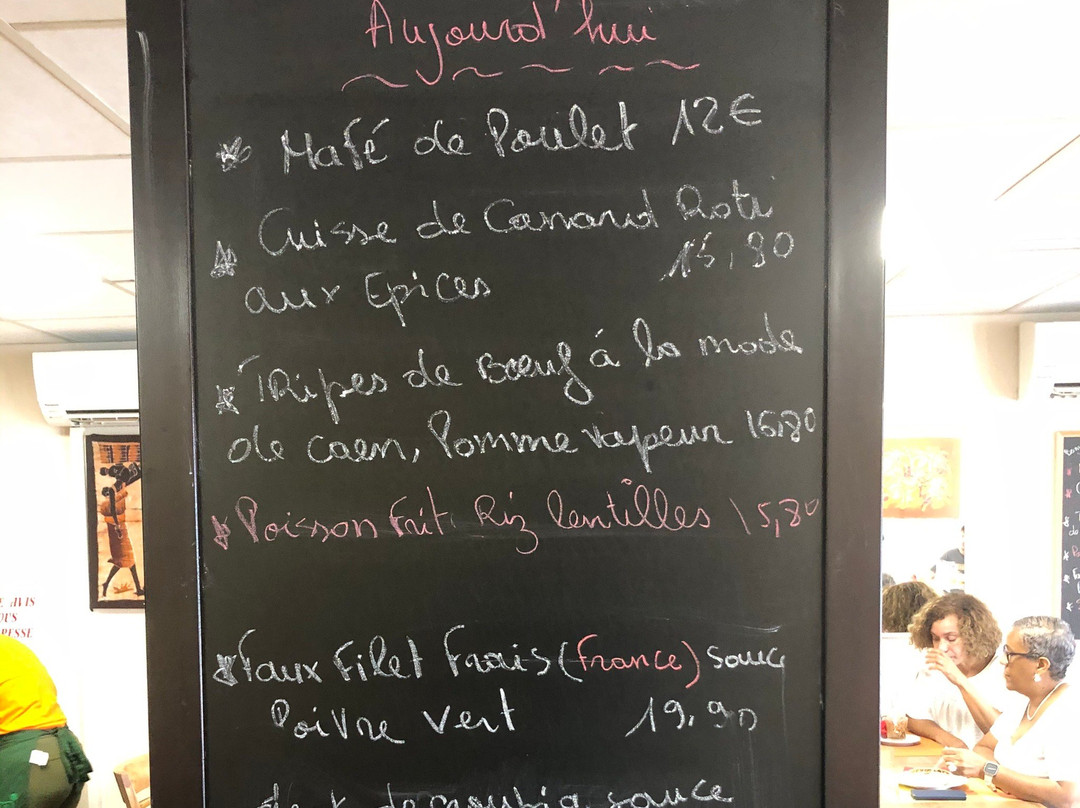 Aujourd'hui
* Mafé de Poulet 12€
Cuisse de Canard Roti
* aux Epices 15,90
* Tripes de Bœuf à la mode
de Caen, Pomme vapeur 16,80
* Poisson Frit Riz lentilles 15,80
* Faux Filet Frais (France) sauce
Poivre vert 19,90
sauce
AVIS